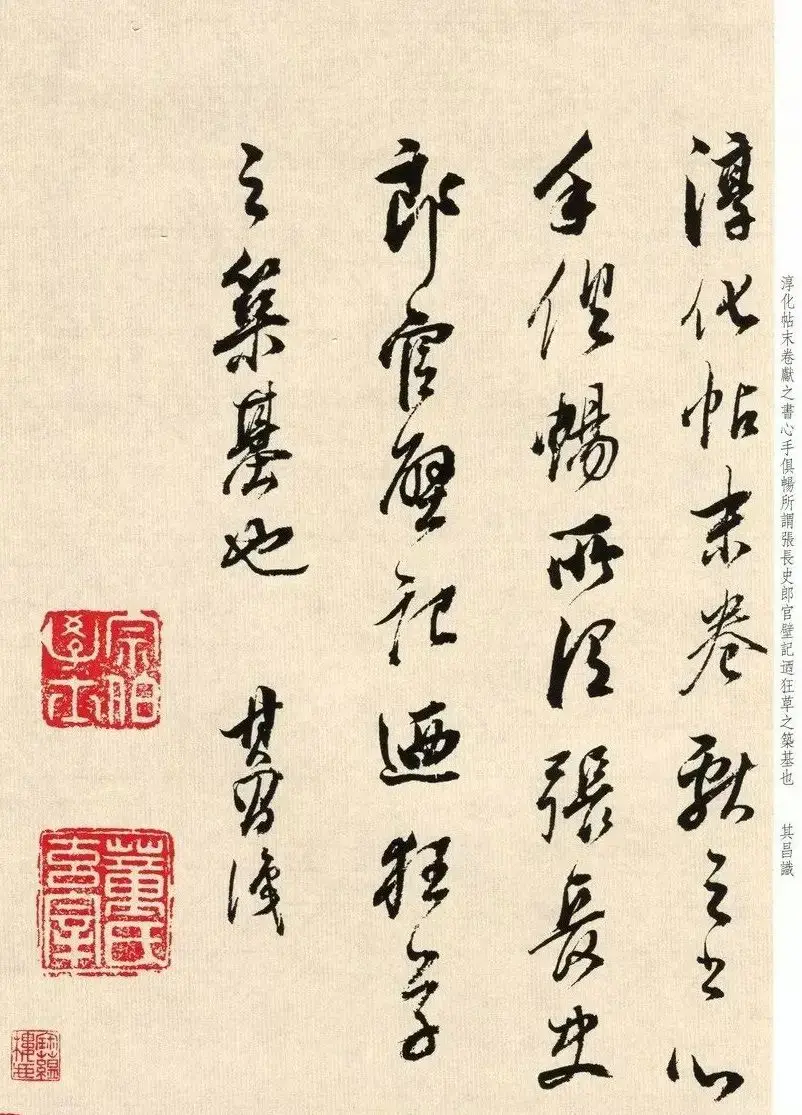 淳化帖末卷獻之書心
手俱暢所謂張長史
郎官壁記迺狂草
之築基也
其昌識
宗伯學士
董氏玄宰
淳化帖末卷獻之書心手俱暢所謂張長史郎官壁記迺狂草之築基也 其昌識